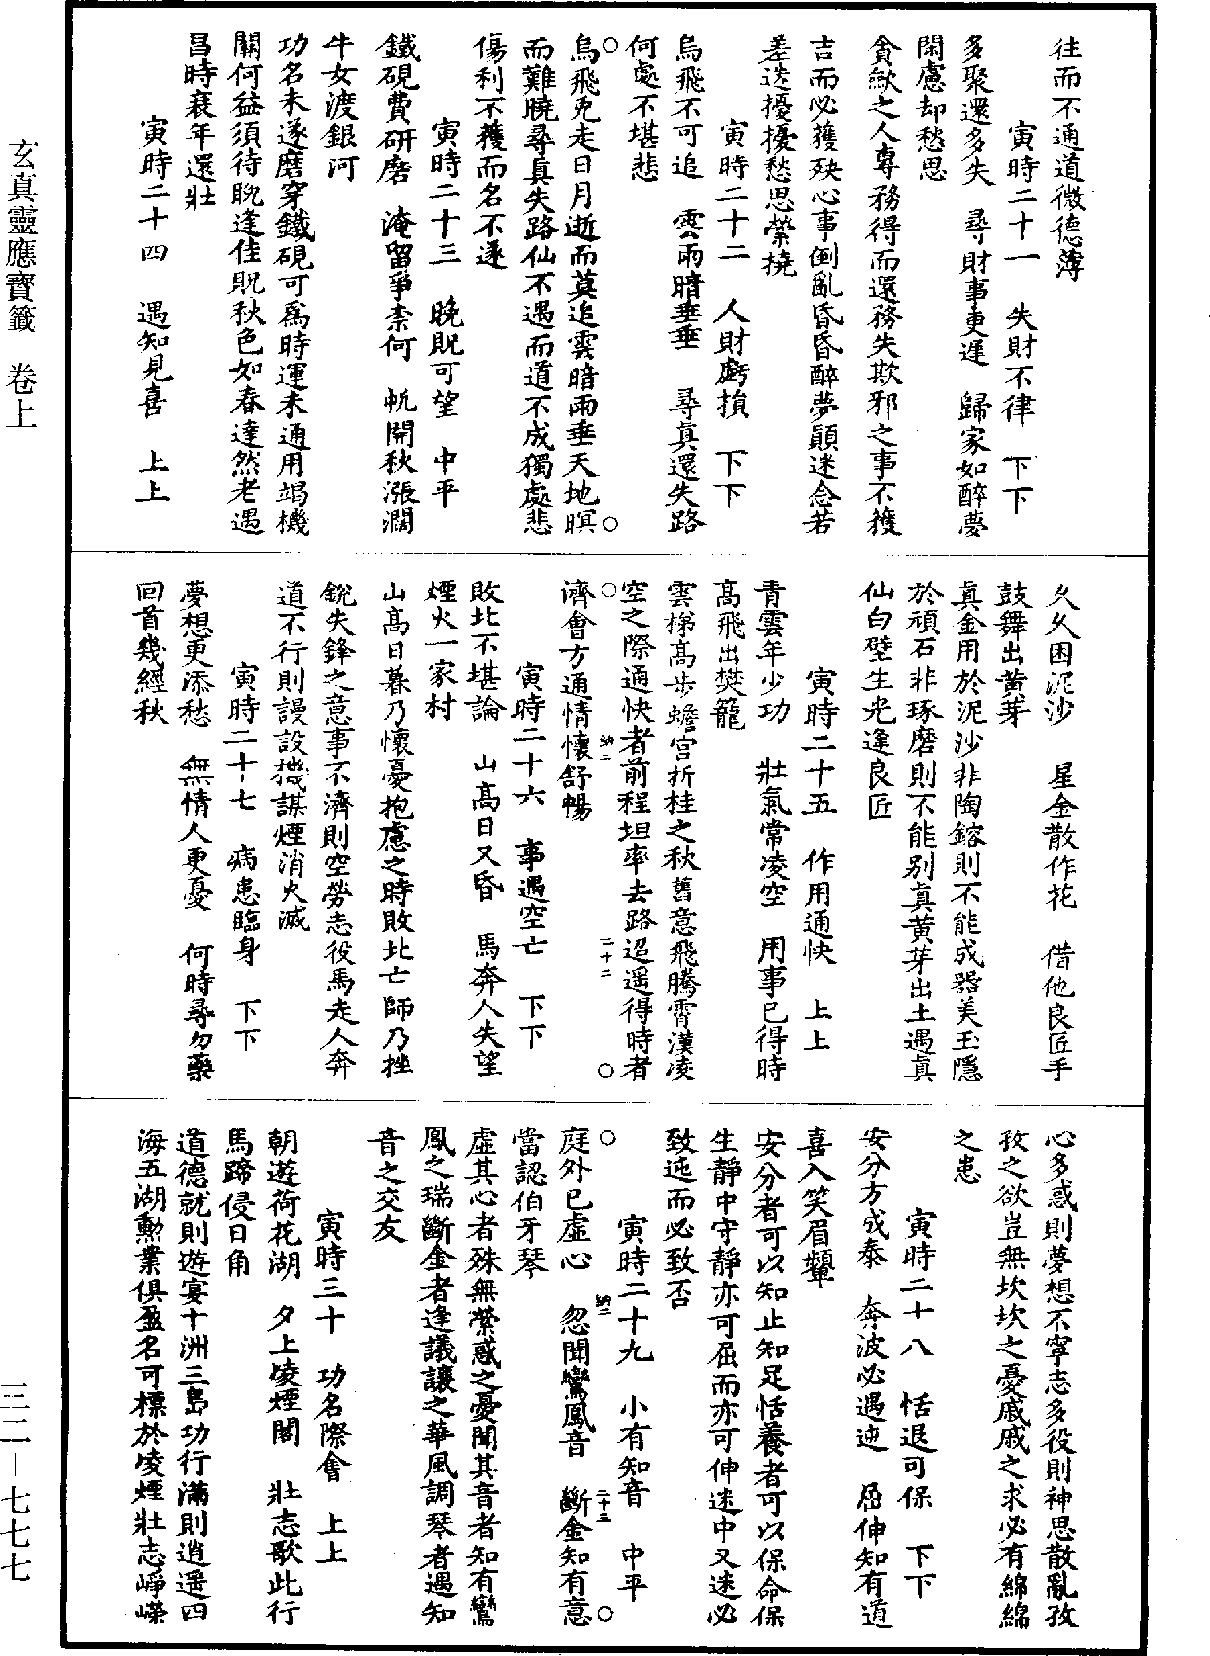 往而不通道微德薄
寅時二十一　失財不律　下下
多聚還多失　尋財事更遲　歸家如醉夢
閑慮却愁思
貪歛之人專務得而還務失欺邪之事不獲
吉而必獲殃心事倒亂昏昏醉夢顛迷念若
差迭擾擾愁思縈撓
寅時二十二　人財虧損　下下
烏飛不可追　雲雨暗垂垂　尋真還失路
何處不堪悲
烏飛兎走日月逝而莫追雲暗雨垂天地暝
而難曉尋真失路仙不遇而道不成獨處悲
傷利不獲而名不遂
寅時二十三　晚貺可望　中平
鐵硯費研磨　淹留爭柰何　帆開秋漲濶
牛女渡銀河
功名未遂磨穿鐵硯可爲時運未通用竭機
關何益須待晚逢佳貺秋色如春達然老遇
昌時衰年還壯
寅時二十四　遇知見喜　上上
久久困泥沙　星金散作花　借他良匠手
鼓舞出黃芽
真金用於泥沙非陶鎔則不能成器美玉隱
於頑石非琢磨則不能別真黃芽出土遇真
仙白璧生光逢良匠
寅時二十五　作用通快　上上
青雲年少功　壯氣常凌空　用事已得時
高飛出樊籠
雲梯高步蟾宮折桂之秋舊意飛騰霄漢凌
空之際通快者前程坦率去路迢遥得時者
濟會方通情懷舒暢
納二
二十二
寅時二十六　事遇空亡　下下
敗北不堪論　山高日又昏　馬奔人失望
煙火一家村
山高日暮乃懷憂抱慮之時敗北亡師乃挫
銳失鋒之意事不濟則空勞志役馬走人奔
道不行則謾設機謀煙消火滅
寅時二十七　病患臨身　下下
夢想更添愁　無情人更憂　何時尋勿藥
回首幾經秋
心多惑則夢想不寧志多役則神思散亂孜
孜之欲豈無坎坎之憂戚戚之求必有綿綿
之患
寅時二十八　恬退可保　下下
安分方成泰　奔波必遇迍　屈伸知有道
喜入笑眉顰
安分者可以知止知足恬養者可以保命保
生靜中守靜亦可屈而亦可伸迷中又迷必
致迍而必致否
寅時二十九　小有知音　中平
庭外已虛心　忽聞鸞鳳音　斷金知有意
當認伯牙琴
納二
二十三
虛其心者殊無縈惑之憂聞其音者知有鸞
鳳之瑞斷金者逢議讓之華風調琴者遇知
音之交友
寅時三十　功名際會　上上
朝遊荷花湖　夕上凌煙閣　壯志歌此行
馬蹄侵日角
道德就則遊宴十洲三島功行滿則逍遥四
海五湖勳業俱盈名可標於凌煙壯志崢嶸
玄真靈應寶籤　卷上
三二—七七七